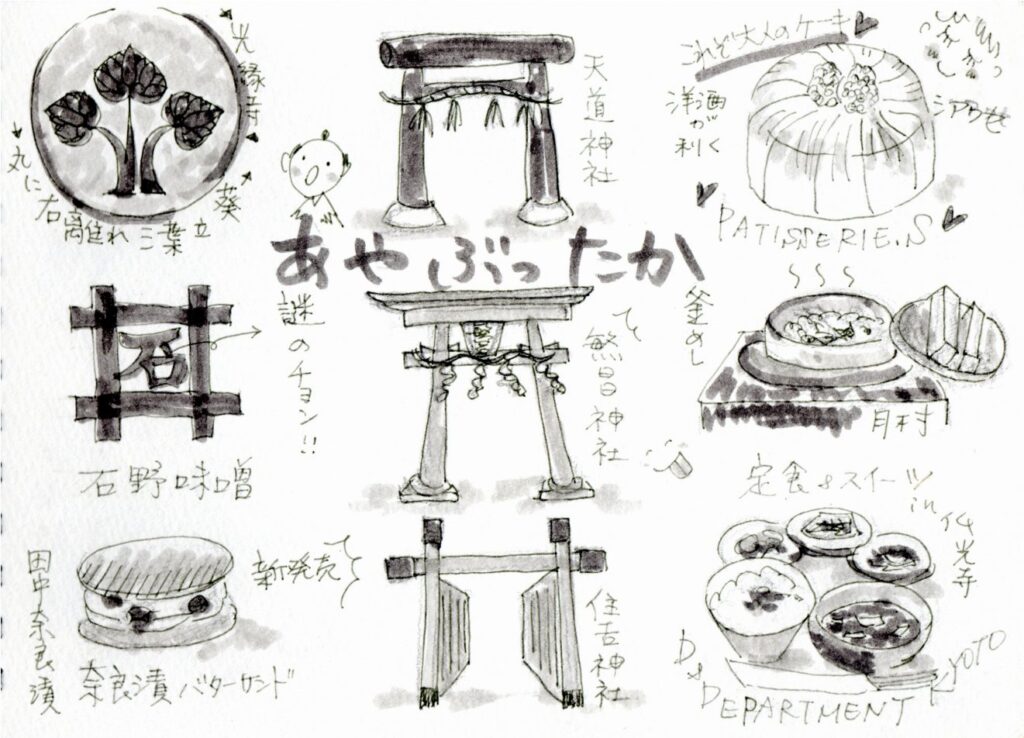 光縁寺
丸に右離れ三葉立葵
天道神社
これぞ大人のケーキ
洋酒が利く
PATISSERIE.S
あやぶったか
石
謎のチョン!!
石野味噌
繁昌神社
釜めし
月村
定食&スイーツ
in 仏光寺
田中奈良漬
新発売
奈良漬バターサンド
住吉神社
D&DEPARTMENT KYOTO